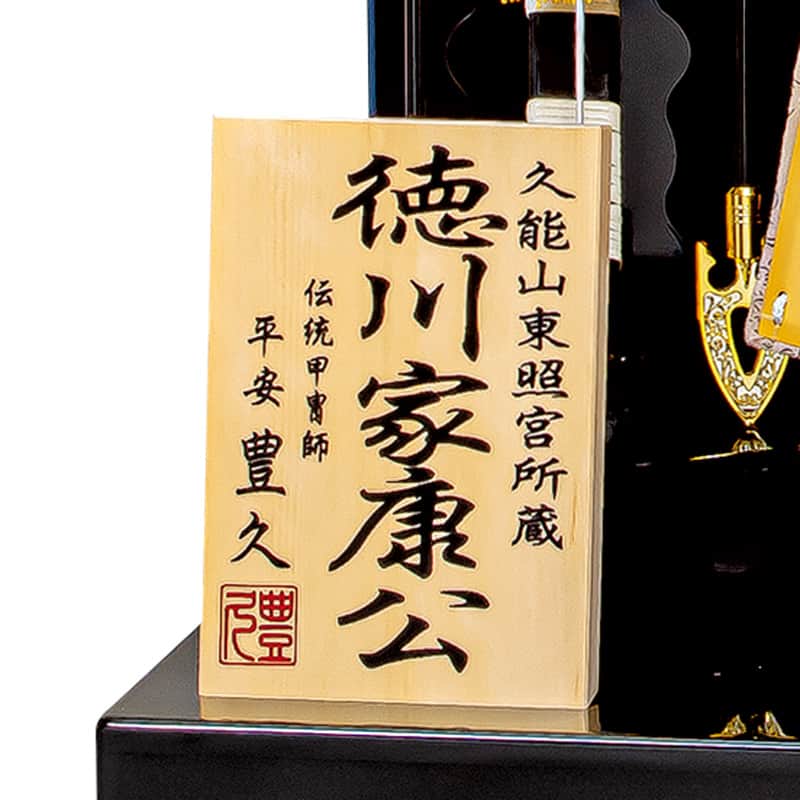 久能山東照宮所蔵
徳川家康公
伝統甲冑師
平安豊久
豊久